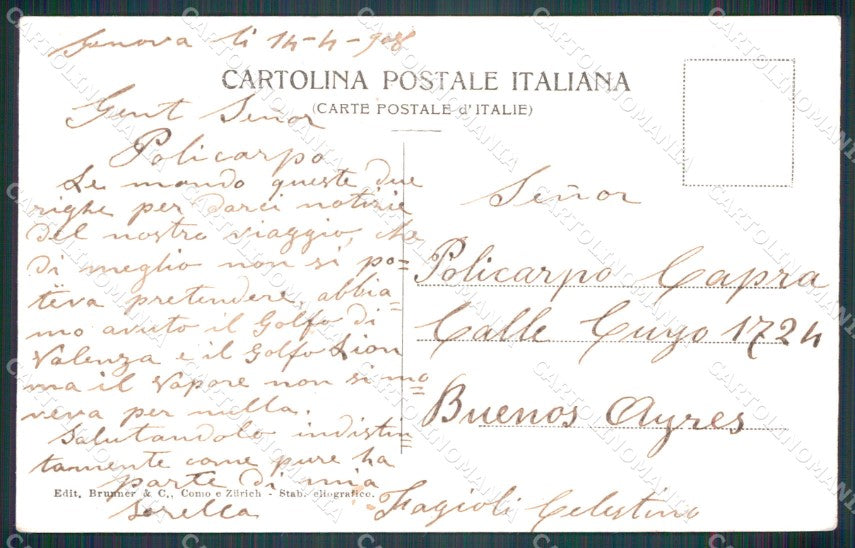 Genova li 14-4-908
CARTOLINA POSTALE ITALIANA
(CARTE POSTALE d'ITALIE)
Gent Señor
Policarpo
Le mando queste due
righe per darci notizie
del nostro viaggio, che
di meglio non si po=
teva pretendere, abbia-
mo avuto il Golfo di
Valenza e il Golfo Lion
ma il vapore non si mo=
veva per nulla.
Salutandolo indistin=
tamente come pure ha
parte di mia
Sorella
Fagioli Celestino
Señor
Policarpo Capra
Calle Cuyo 1724
Buenos Ayres
Edit. Brunner & C., Como e Zürich - Stab. eliografico.
CARTOLINOMANIA